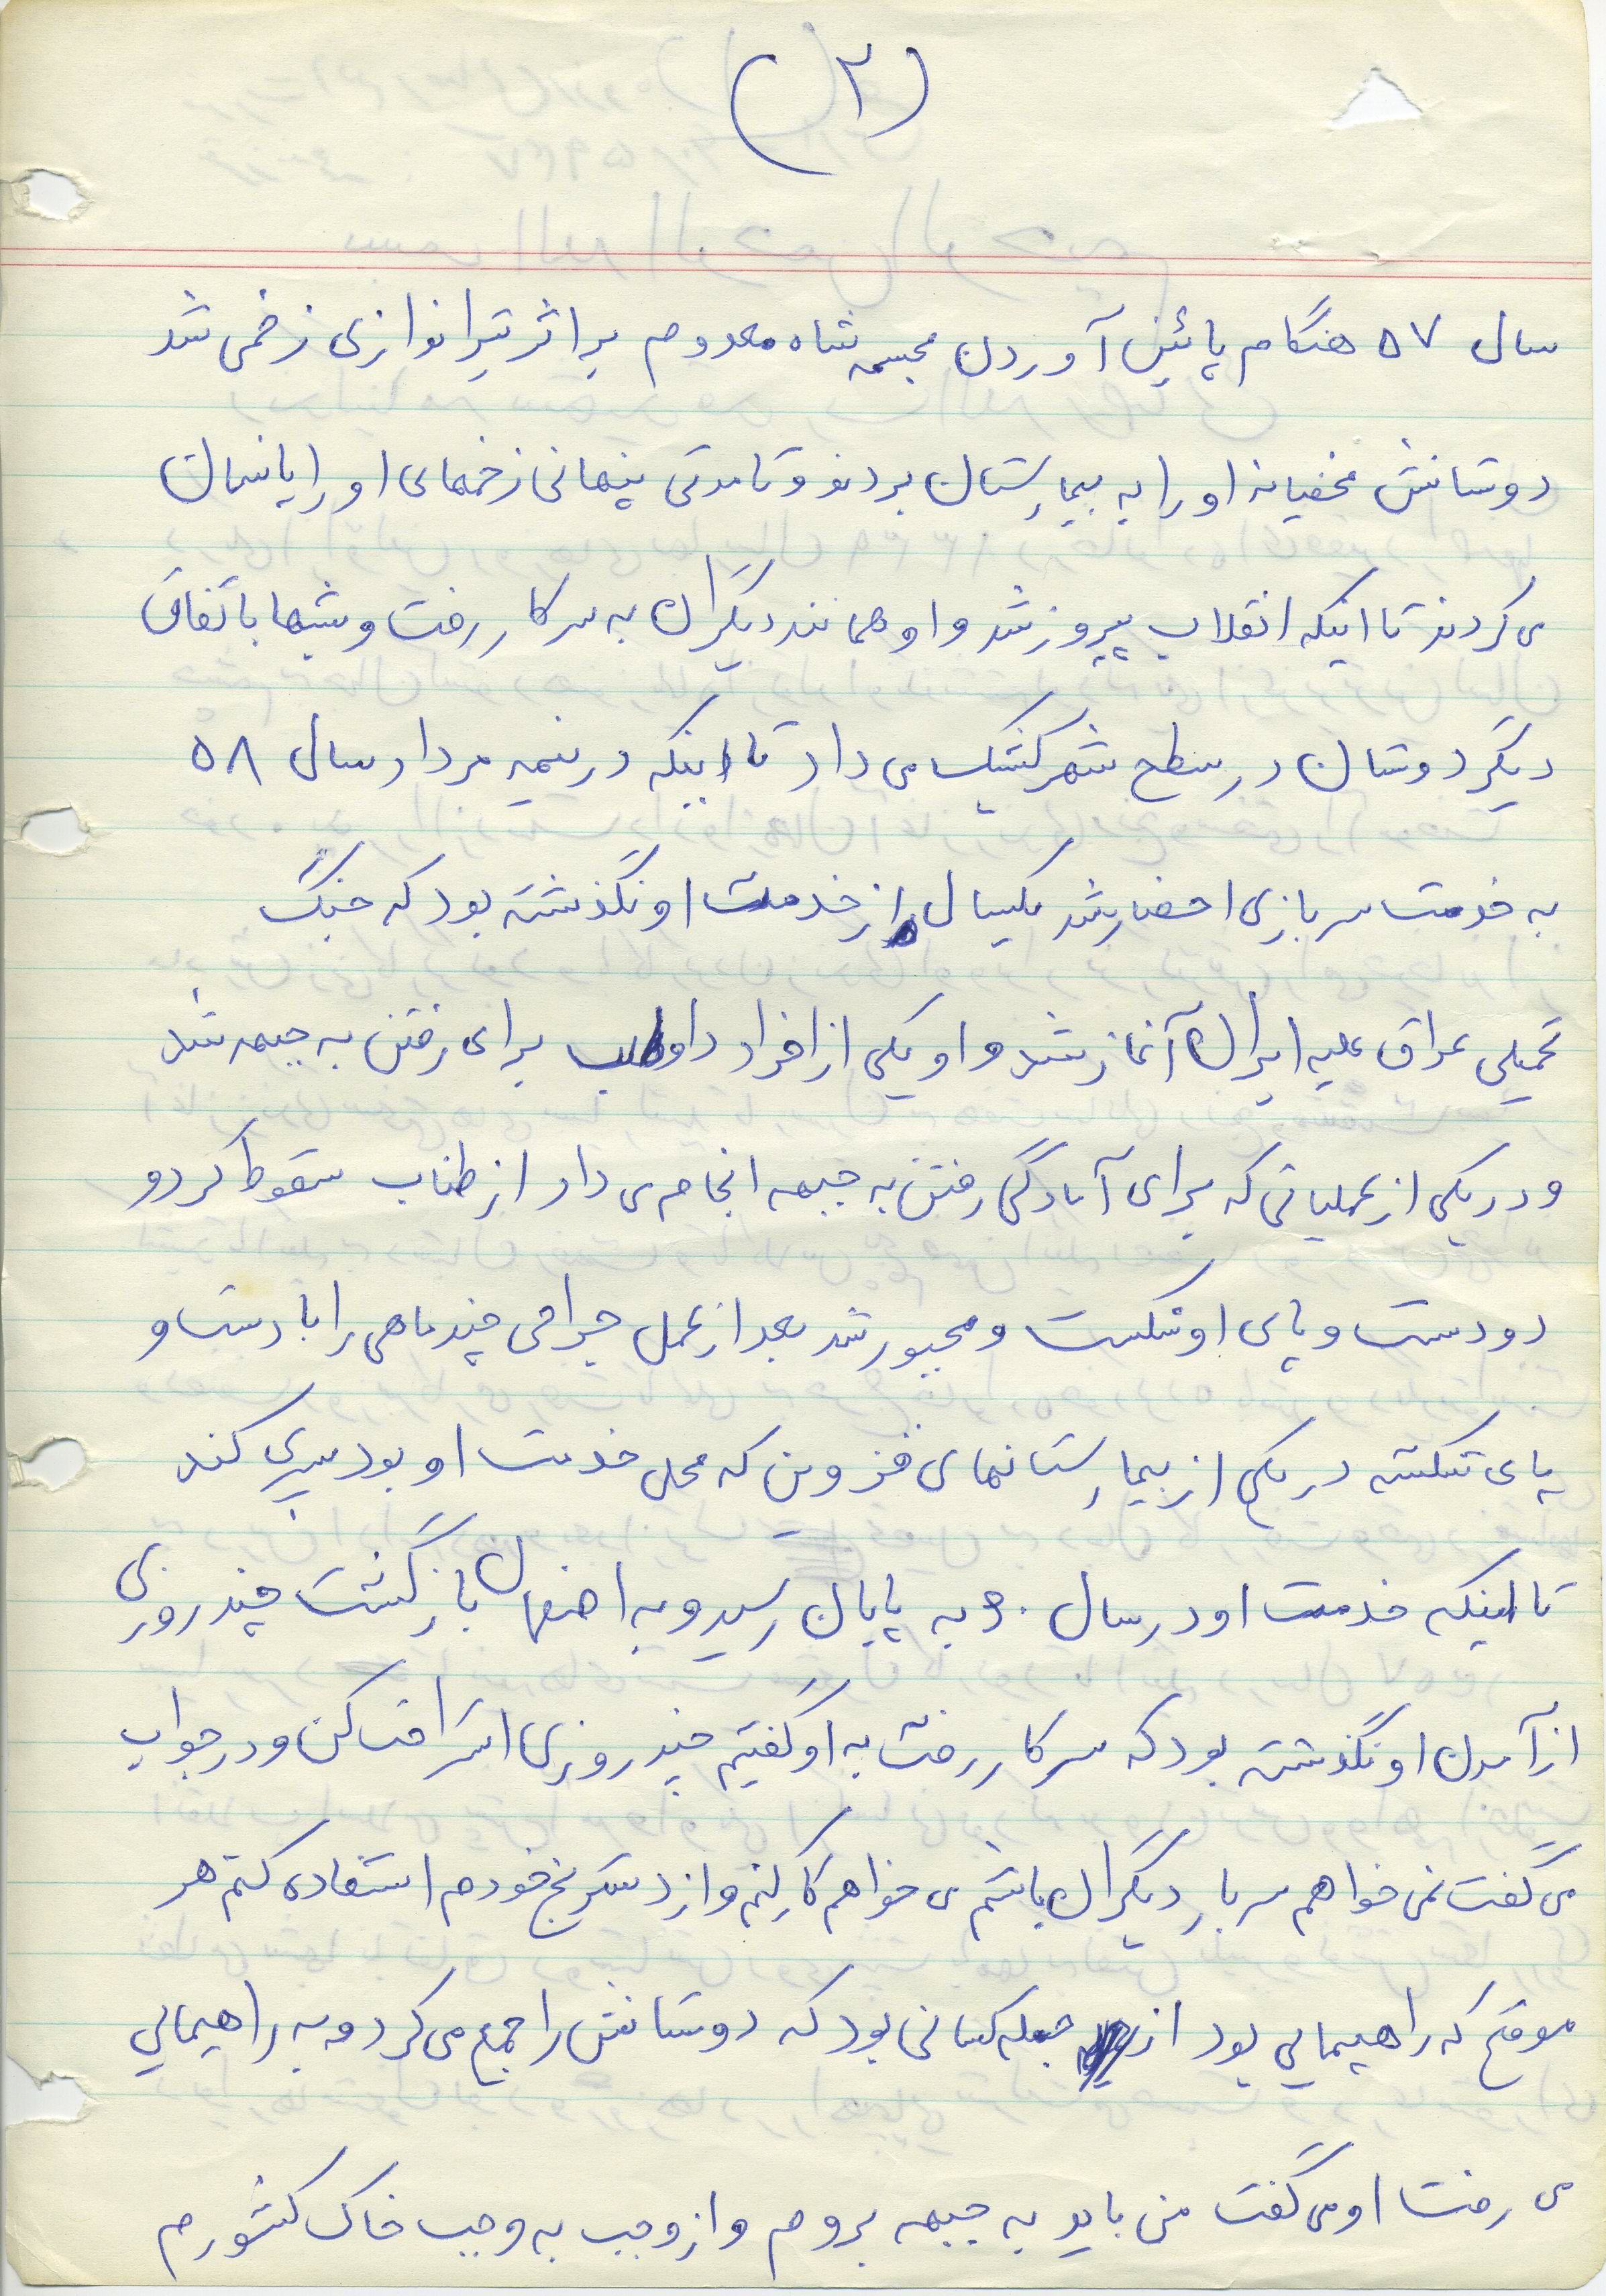 (۲)
سال ۵۷ هنگام پائین آوردن مجسمه شاه معدوم بر اثر تیراندازی زخمی شد
دوستانش مخفیانه او را به بیمارستان بردند و تا مدتی پنهانی زخمهای او را پانسمان
می کردند تا اینکه انقلاب پیروز شد و او همانند دیگران به سر کار رفت و شبها باتفاق
دیگر دوستان در سطح شهر کشیک می داد تا اینکه در نیمه مرداد سال ۵۸
به خدمت سربازی احضار شد یکسال از خدمت او نگذشته بود که جنگ
تحمیلی عراق علیه ایران آغاز شد و او یکی از افراد داوطلب برای رفتن به جبهه شد
و در یکی از عملیاتی که برای آمادگی رفتن به جبهه انجام می داد از طناب سقوط کرد و
دو دست و پای او شکست و مجبور شد بعد از عمل جراحی چند ماهی را با دست و
پای شکسته در یکی از بیمارستانهای قزوین که محل خدمت او بود سپری کند
تا اینکه خدمت او در سال ۶۰ به پایان رسید و به اصفهان بازگشت چند روزی
از آمدن او نگذشته بود که سر کار رفت به او گفتیم چند روزی استراحت کن و در جواب
می گفت نمی خواهم سربار دیگران باشم می خواهم کار کنم و از دسترنج خودم استفاده کنم هر
موقع که راهپیمایی بود از جمله کسانی بود که دوستانش را جمع می کرد و به راهپیمایی
می رفت او می گفت من باید به جبهه بروم و از وجب به وجب خاک کشورم